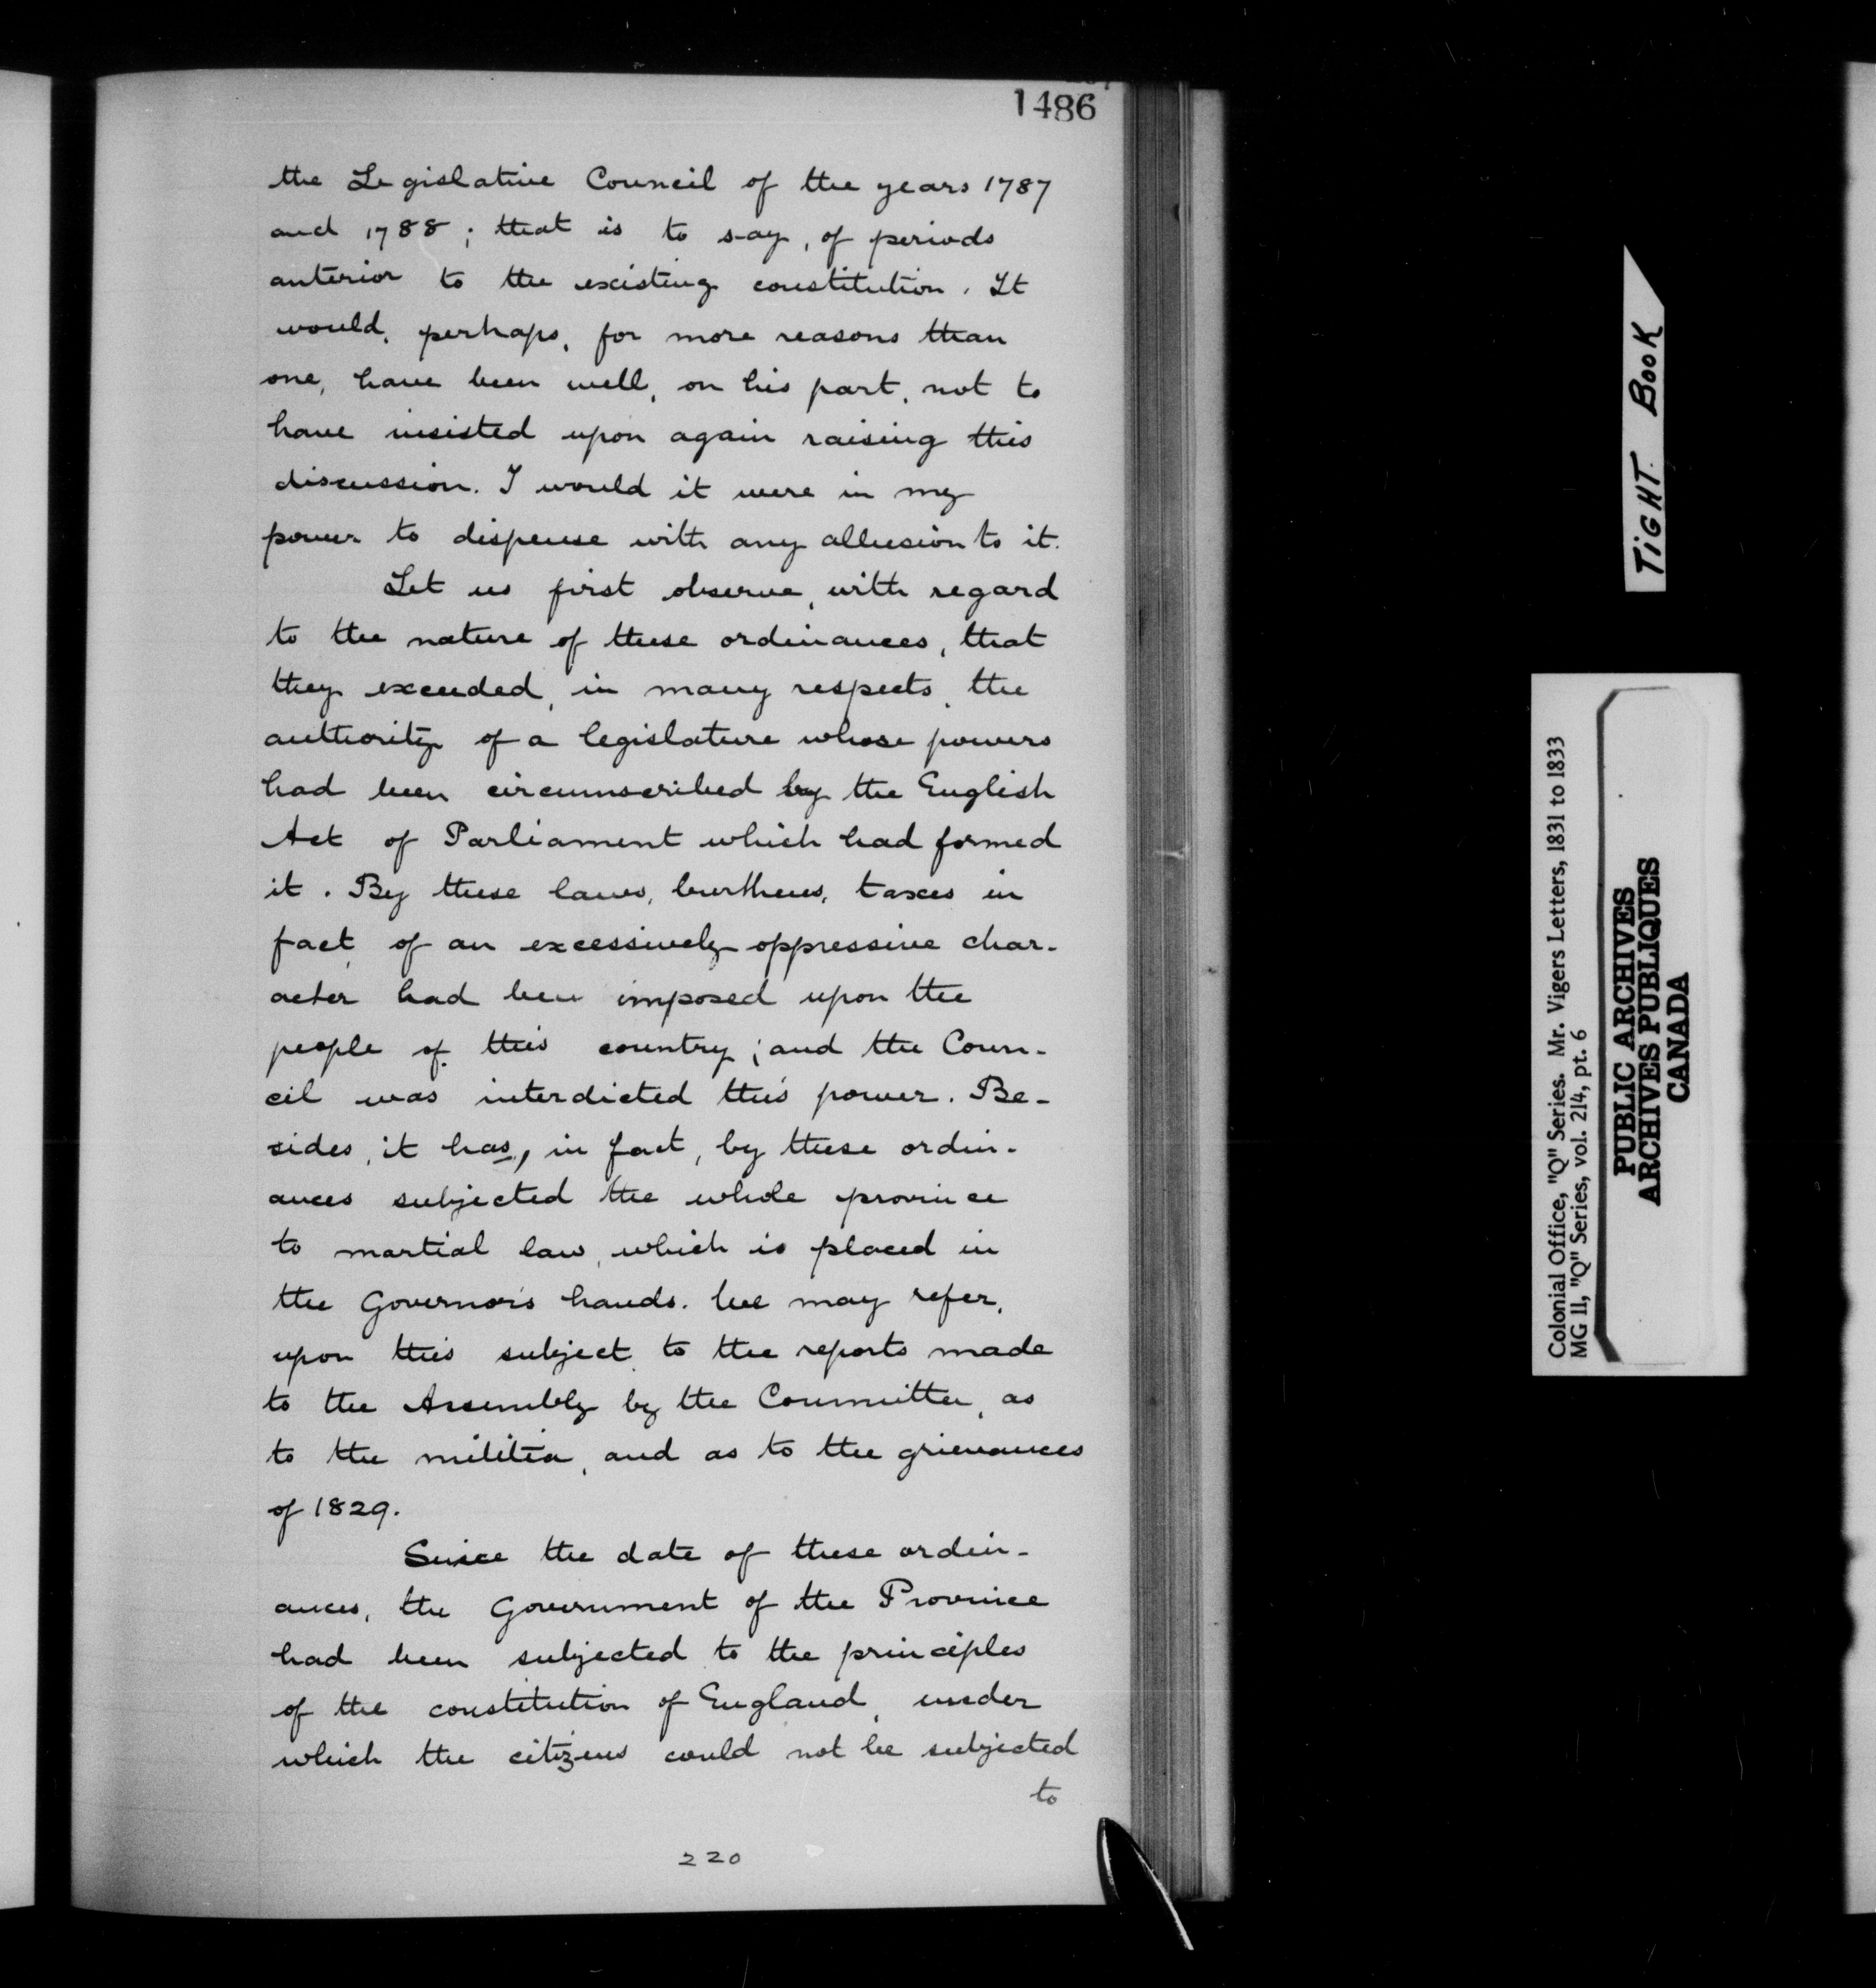 1486
the Legislative Council of the years 1787
and 1788; that is to say, of periods
anterior to the existing constitution. It
would, perhaps, for more reasons than
one, have been well, on his part, not to
have insisted upon again raising this
discussion. I would it were in my
power to dispense with any allusion to it.
Let us first observe, with regard
to the nature of these ordinances, that
they exceeded, in many respects, the
authority of a legislature whose powers
had been circumscribed by the English
Act of Parliament which had formed
it. By these laws, burthens, taxes in
fact, of an excessively oppressive char-
acter had been imposed upon the
people of this country; and the Coun-
cil was interdicted this power. Be-
sides, it has, in fact, by these ordin-
ances subjected the whole province
to martial law, which is placed in
the Governor's hands. We may refer,
upon this subject, to the reports made
to the Assembly by the Committee, as
to the militia, and as to the grievances
of 1829.
Since the date of these ordin-
ances, the Government of the Province
had been subjected to the principles
of the constitution of England, under
which the citizens could not be subjected
to
220
TIGHT BOOK
Colonial Office, "Q" Series. Mr. Vigers Letters, 1831 to 1833
MG 11, "Q" Series, vol. 214, pt. 6
PUBLIC ARCHIVES
ARCHIVES PUBLIQUES
CANADA